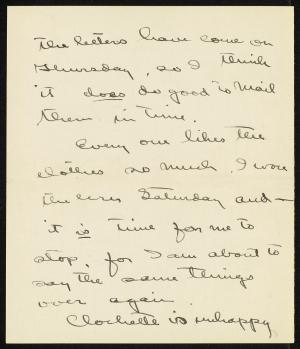 the letters have come on
Thursday, so I think
it does do good to mail
them in time.
Every one likes the
clothes so much. I wore
the Saturday and —
it is time for me to
stop, for I am about to
say the same things
over again.
Clochette is unhappy